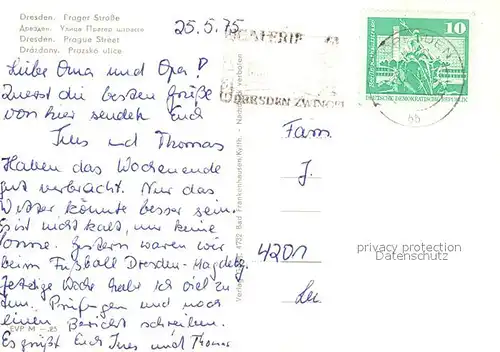 Dresden. Prager Straße
Дрезден. Улица Прагер штрассе
Dresden. Prague Street
Drážďany. Pražská ulice
25.5.75
GALERIE
DRESDEN ZWINGER
10
DEUTSCHE DEMOKRATISCHE REPUBLIK
Liebe Oma und Opa!
Zuerst die besten Grüße
von hier sendet Euch
Ines und Thomas
Haben das Wochenende
gut verbracht. Nur das
Wetter könnte besser sein.
Es ist nicht kalt, nur keine
Sonne. Gestern waren wir
beim Fußball Dresden-Magdebg.
Jetzige Woche habe ich viel zu
tun. Prüfungen und noch
einen Bericht schreiben.
Es grüßt Euch Ines und Thomas
EVP M –.25
4732 Bad Frankenhausen/Kyffh. - Nachdruck verboten
Fam.
J.
4201
Leu
privacy protection
Datenschutz